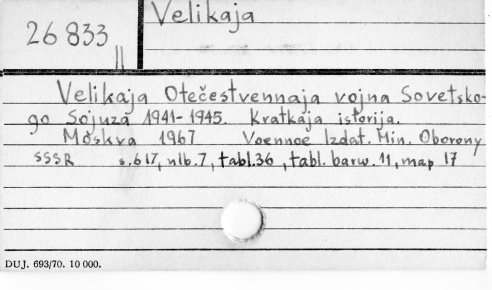 26 833
II
Velikaja
Velikaja Otečestvennaja vojna Sovetsko-
go Sojuza 1941-1945. Kratkaja istorija.
Moskva 1967 Voennoe Izdat. Min. Oborony
SSSR s.617, nlb.7, tabl.36, tabl. barw. 11, map 17
DUJ. 693/70. 10 000.